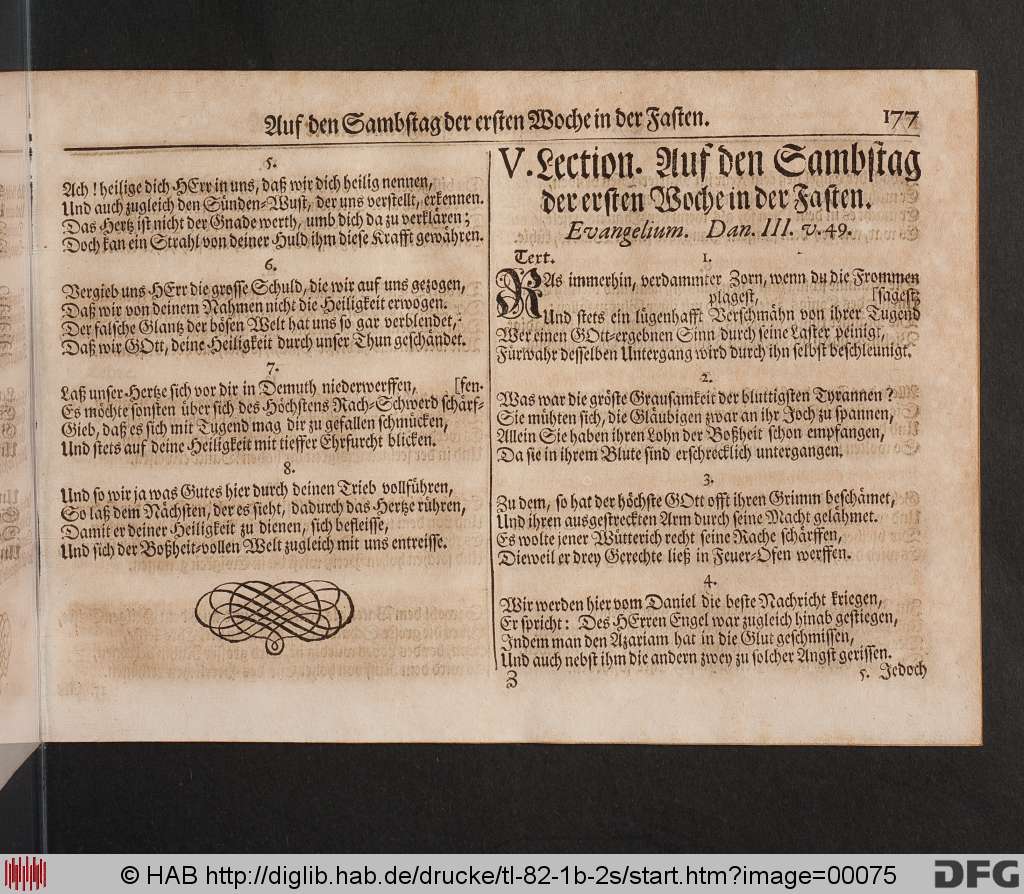 Auf den Sambstag der ersten Woche in der Fasten. 177
5.
Ach! heilige dich HErr in uns, daß wir dich heilig nennen,
Und auch zugleich den Sünden-Wust, der uns verstellt, erkennen.
Das Hertz ist nicht der Gnade werth, umb dich da zu verklären;
Doch kan ein Strahl von deiner Huld ihm diese Krafft gewähren.
6.
Vergieb uns HErr die grosse Schuld, die wir auf uns gezogen,
Daß wir von deinem Nahmen nicht die Heiligkeit erwogen.
Der falsche Glantz der bösen Welt hat uns so gar verblendet,
Daß wir GOtt, deine Heiligkeit durch unser Thun geschändet.
7.
Laß unser Hertze sich vor dir in Demuth niederwerffen, [fen.
Es möchte sonsten über sich des Höchstens Rach-Schwerd schärf-
Gieb, daß es sich mit Tugend mag dir zu gefallen schmücken,
Und stets auf deine Heiligkeit mit tieffer Ehrfurcht blicken.
8.
Und so wir ja was Gutes hier durch deinen Trieb vollführen,
So laß dem Nächsten, der es sieht, dadurch das Hertze rühren,
Damit er deiner Heiligkeit zu dienen, sich befleisse,
Und sich der Boßheit-vollen Welt zugleich mit uns entreisse.
V. Lection. Auf den Sambstag
der ersten Woche in der Fasten.
Evangelium. Dan. III. v. 49.
Text. 1.
RAs immerhin, verdammter Zorn, wenn du die Frommen
plagest, [sagest;
Und stets ein lügenhafft Verschmähn von ihrer Tugend
Wer einen GOtt-ergebnen Sinn durch seine Laster peinigt,
Fürwahr desselben Untergang wird durch ihn selbst beschleunigt.
2.
Was war die gröste Grausamkeit der bluttigsten Tyrannen?
Sie mühten sich, die Gläubigen zwar an ihr Joch zu spannen,
Allein Sie haben ihren Lohn der Boßheit schon empfangen,
Da sie in ihrem Blute sind erschrecklich untergangen.
3.
Zu dem, so hat der höchste GOtt offt ihren Grimm beschämet,
Und ihren ausgestreckten Arm durch seine Macht gelähmet.
Es wolte jener Wütterich recht seine Rache schärffen,
Dieweil er drey Gerechte ließ in Feuer-Ofen werffen.
4.
Wir werden hier vom Daniel die beste Nachricht kriegen,
Er spricht: Des HErren Engel war zugleich hinab gestiegen,
Indem man den Azariam hat in die Glut geschmissen,
Und auch nebst ihm die andern zwey zu solcher Angst gerissen.
Z 5. Jedoch
© HAB http://diglib.hab.de/drucke/tl-82-1b-2s/start.htm?image=00075
DFG